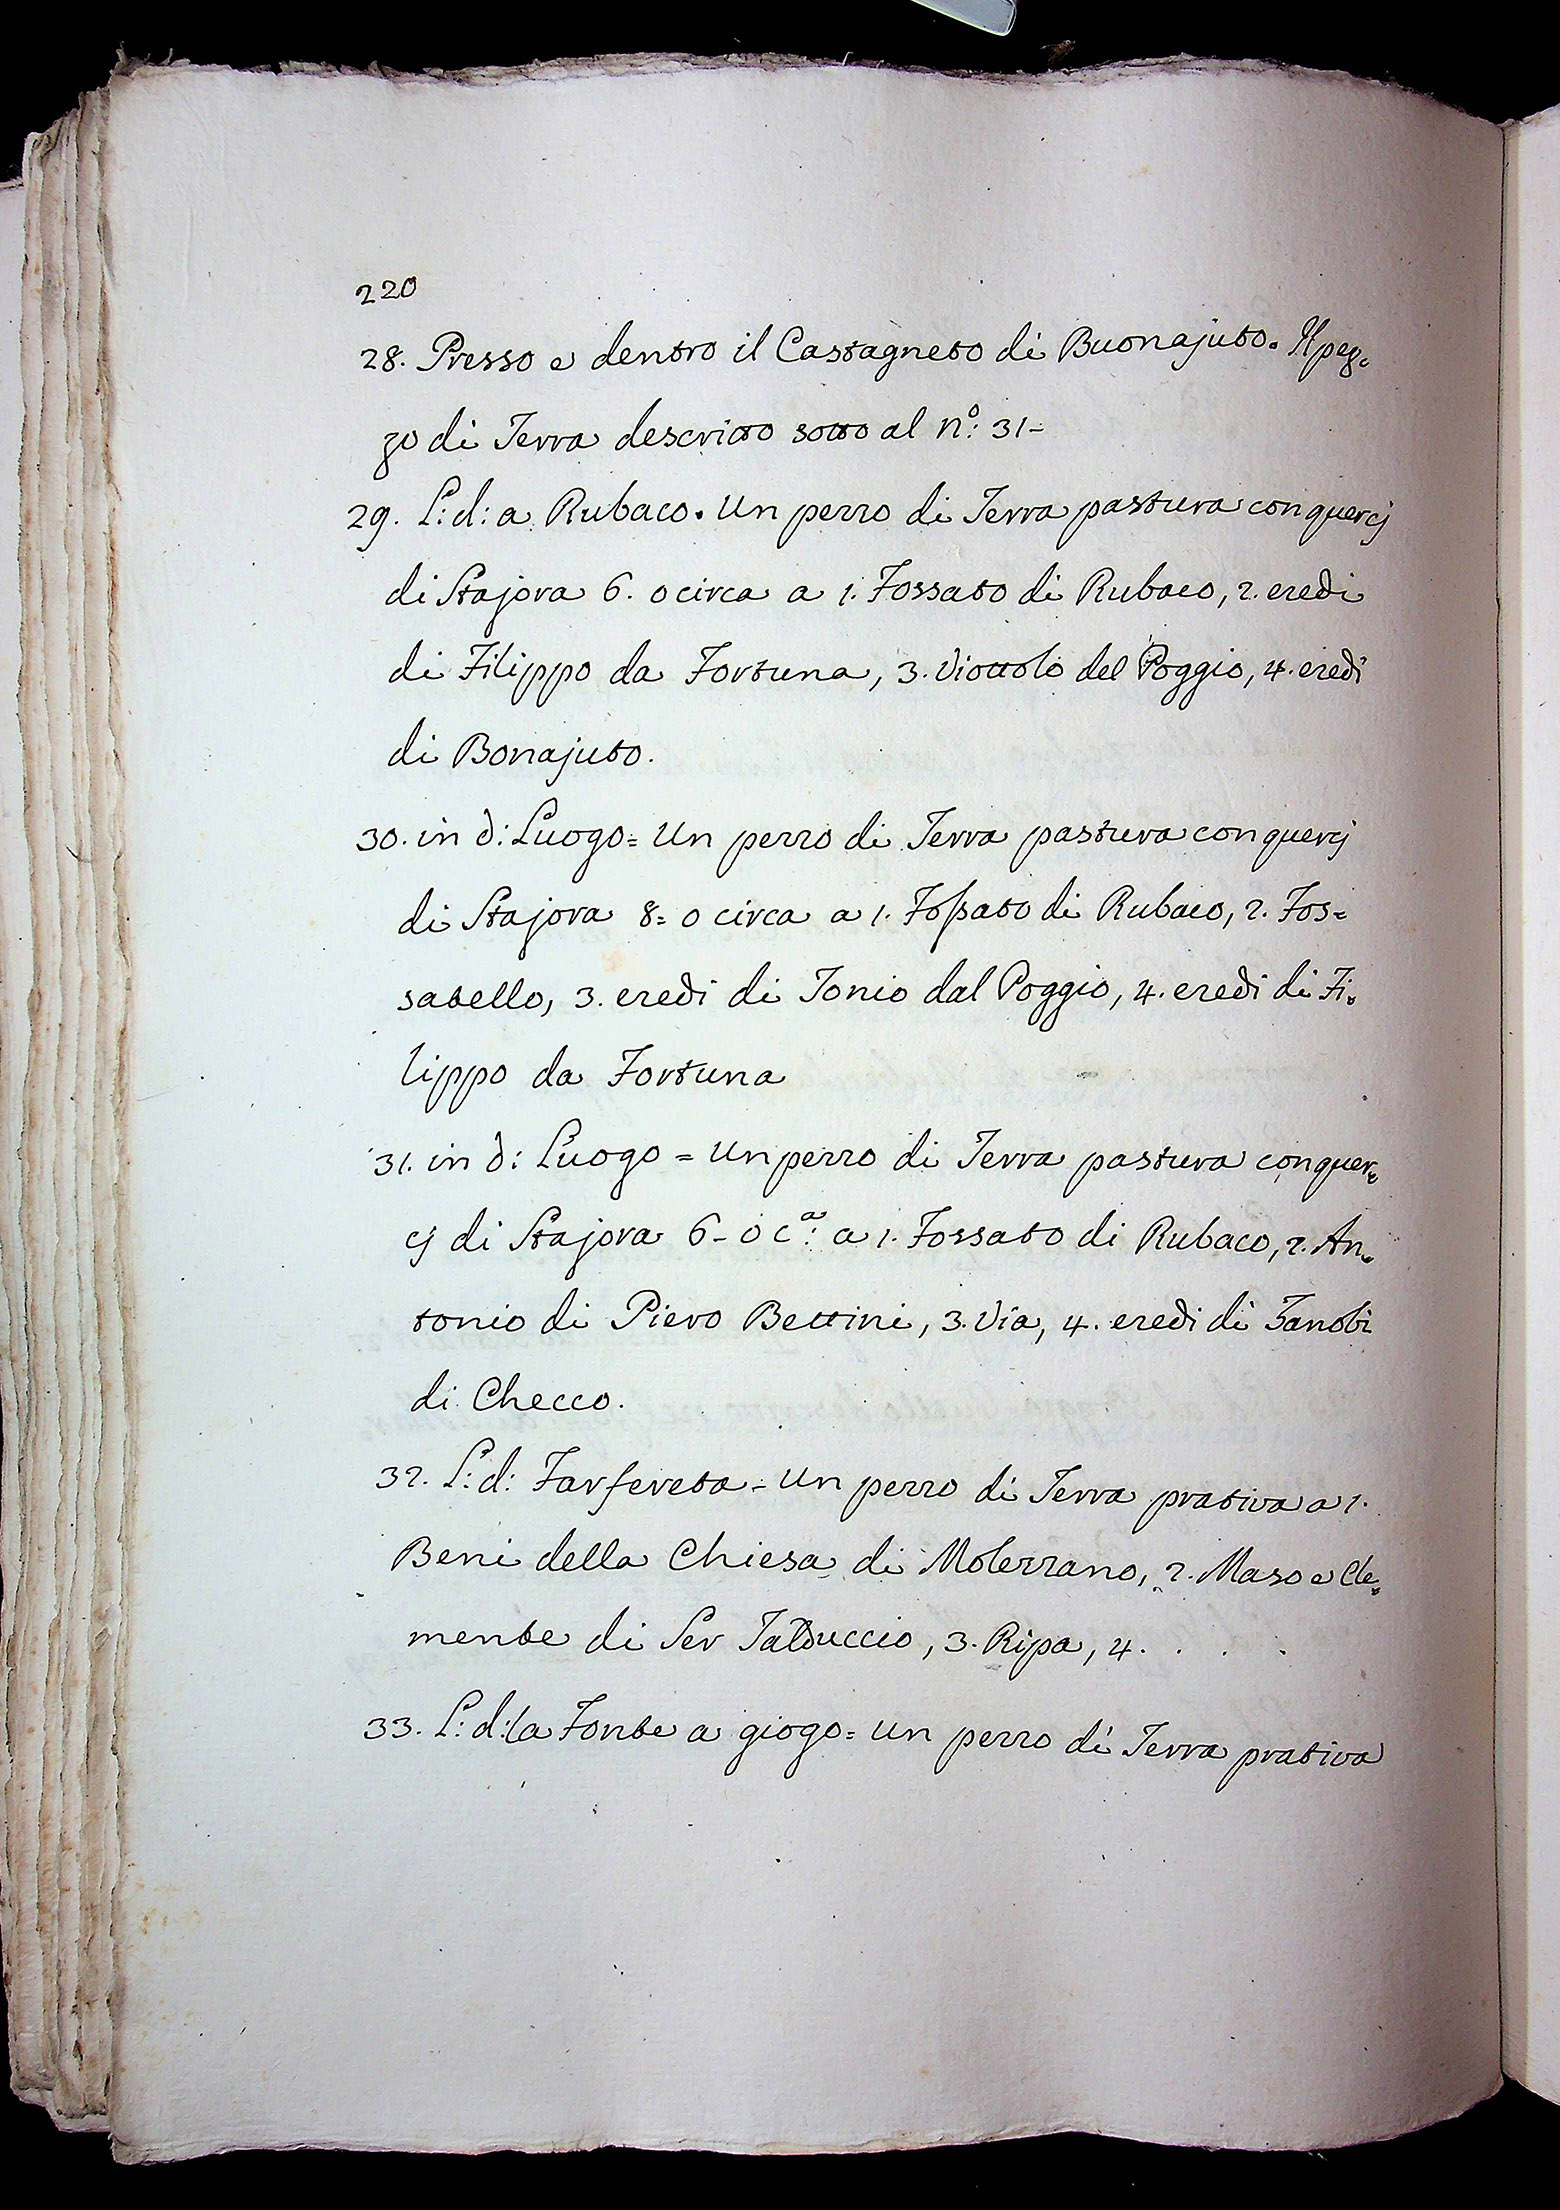 220
28. Presso e dentro il Castagneto di Buonajuto. Il pez-
zo di Terra descritto sotto al n.º: 31-
29. L: d: a Rubaco. Un pezzo di Terra pastura con quercj
di Stajora 6. o circa a 1. Fossato di Rubaco, 2. eredi
di Filippo da Fortuna, 3. Viottolo del Poggio, 4. eredi
di Bonajuto.
30. in d: Luogo = Un pezzo di Terra pastura con quercj
di Stajora 8= o circa a 1. Fossato di Rubaco, 2. Fos=
satello, 3. eredi di Tonio dal Poggio, 4. eredi di Fi-
lippo da Fortuna
31. in d: Luogo = Un pezzo di Terra pastura con quer-
cj di Stajora 6- o c.ª: a 1. Fossato di Rubaco, 2. An-
tonio di Piero Bettini, 3. Via, 4. eredi di Zanobi
di Checco.
32. L: d: Farfereta - Un pezzo di Terra prativa a 1.
Beni della Chiesa di Molezzano, 2. Maso e Cle-
mente di Ser Talduccio, 3. Ripa, 4. . . .
33. L: d: la Fonte a giogo = Un pezzo di Terra prativa